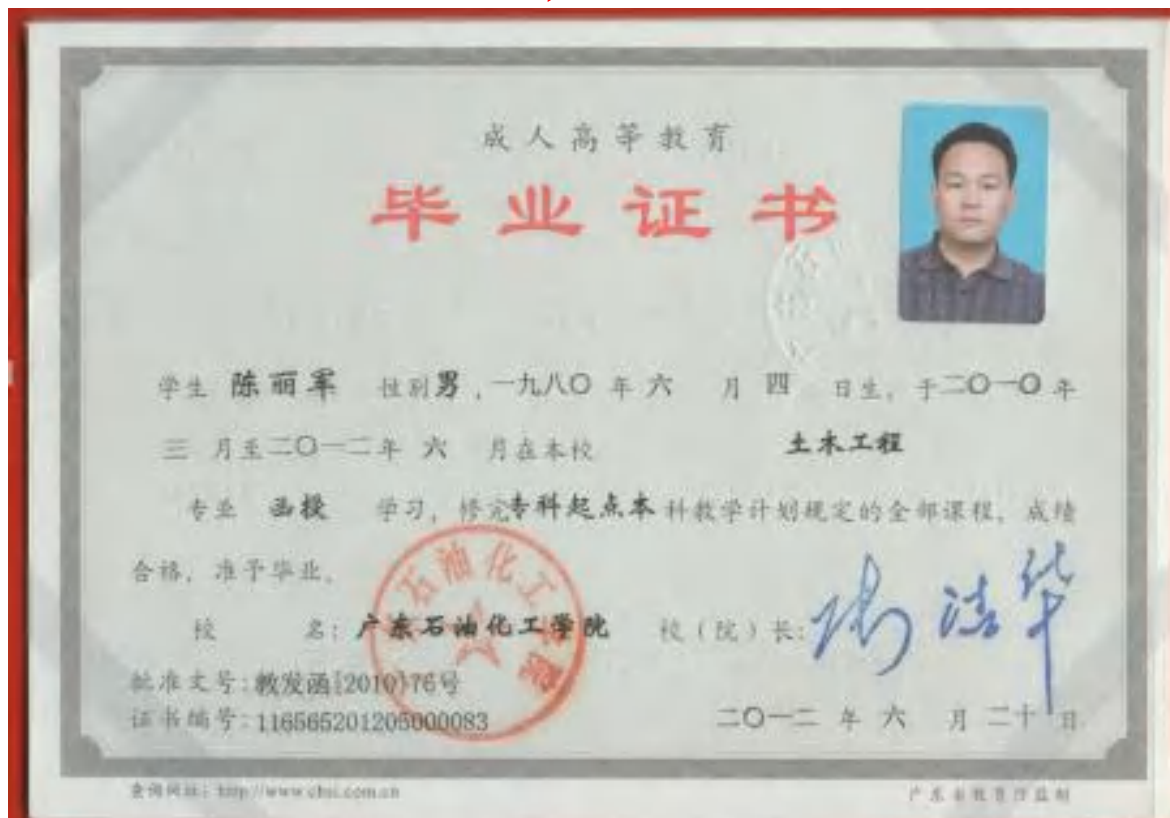 成人高等教育
毕业证书
学生 陈丽军 性别男，一九八〇 年 六 月 四 日生，于二〇一〇 年
三 月至二〇一二年 六 月在本校 土木工程
专业 函授 学习，修完专科起点本科教学计划规定的全部课程，成绩
合格，准予毕业。
校 名：广东石油化工学院 校（院）长：
批准文号：教发函[2010]76号
证书编号：116565201205000083
二〇一二 年 六 月 二十 日
查询网址：http://www.chsi.com.cn 广东省教育厅监制